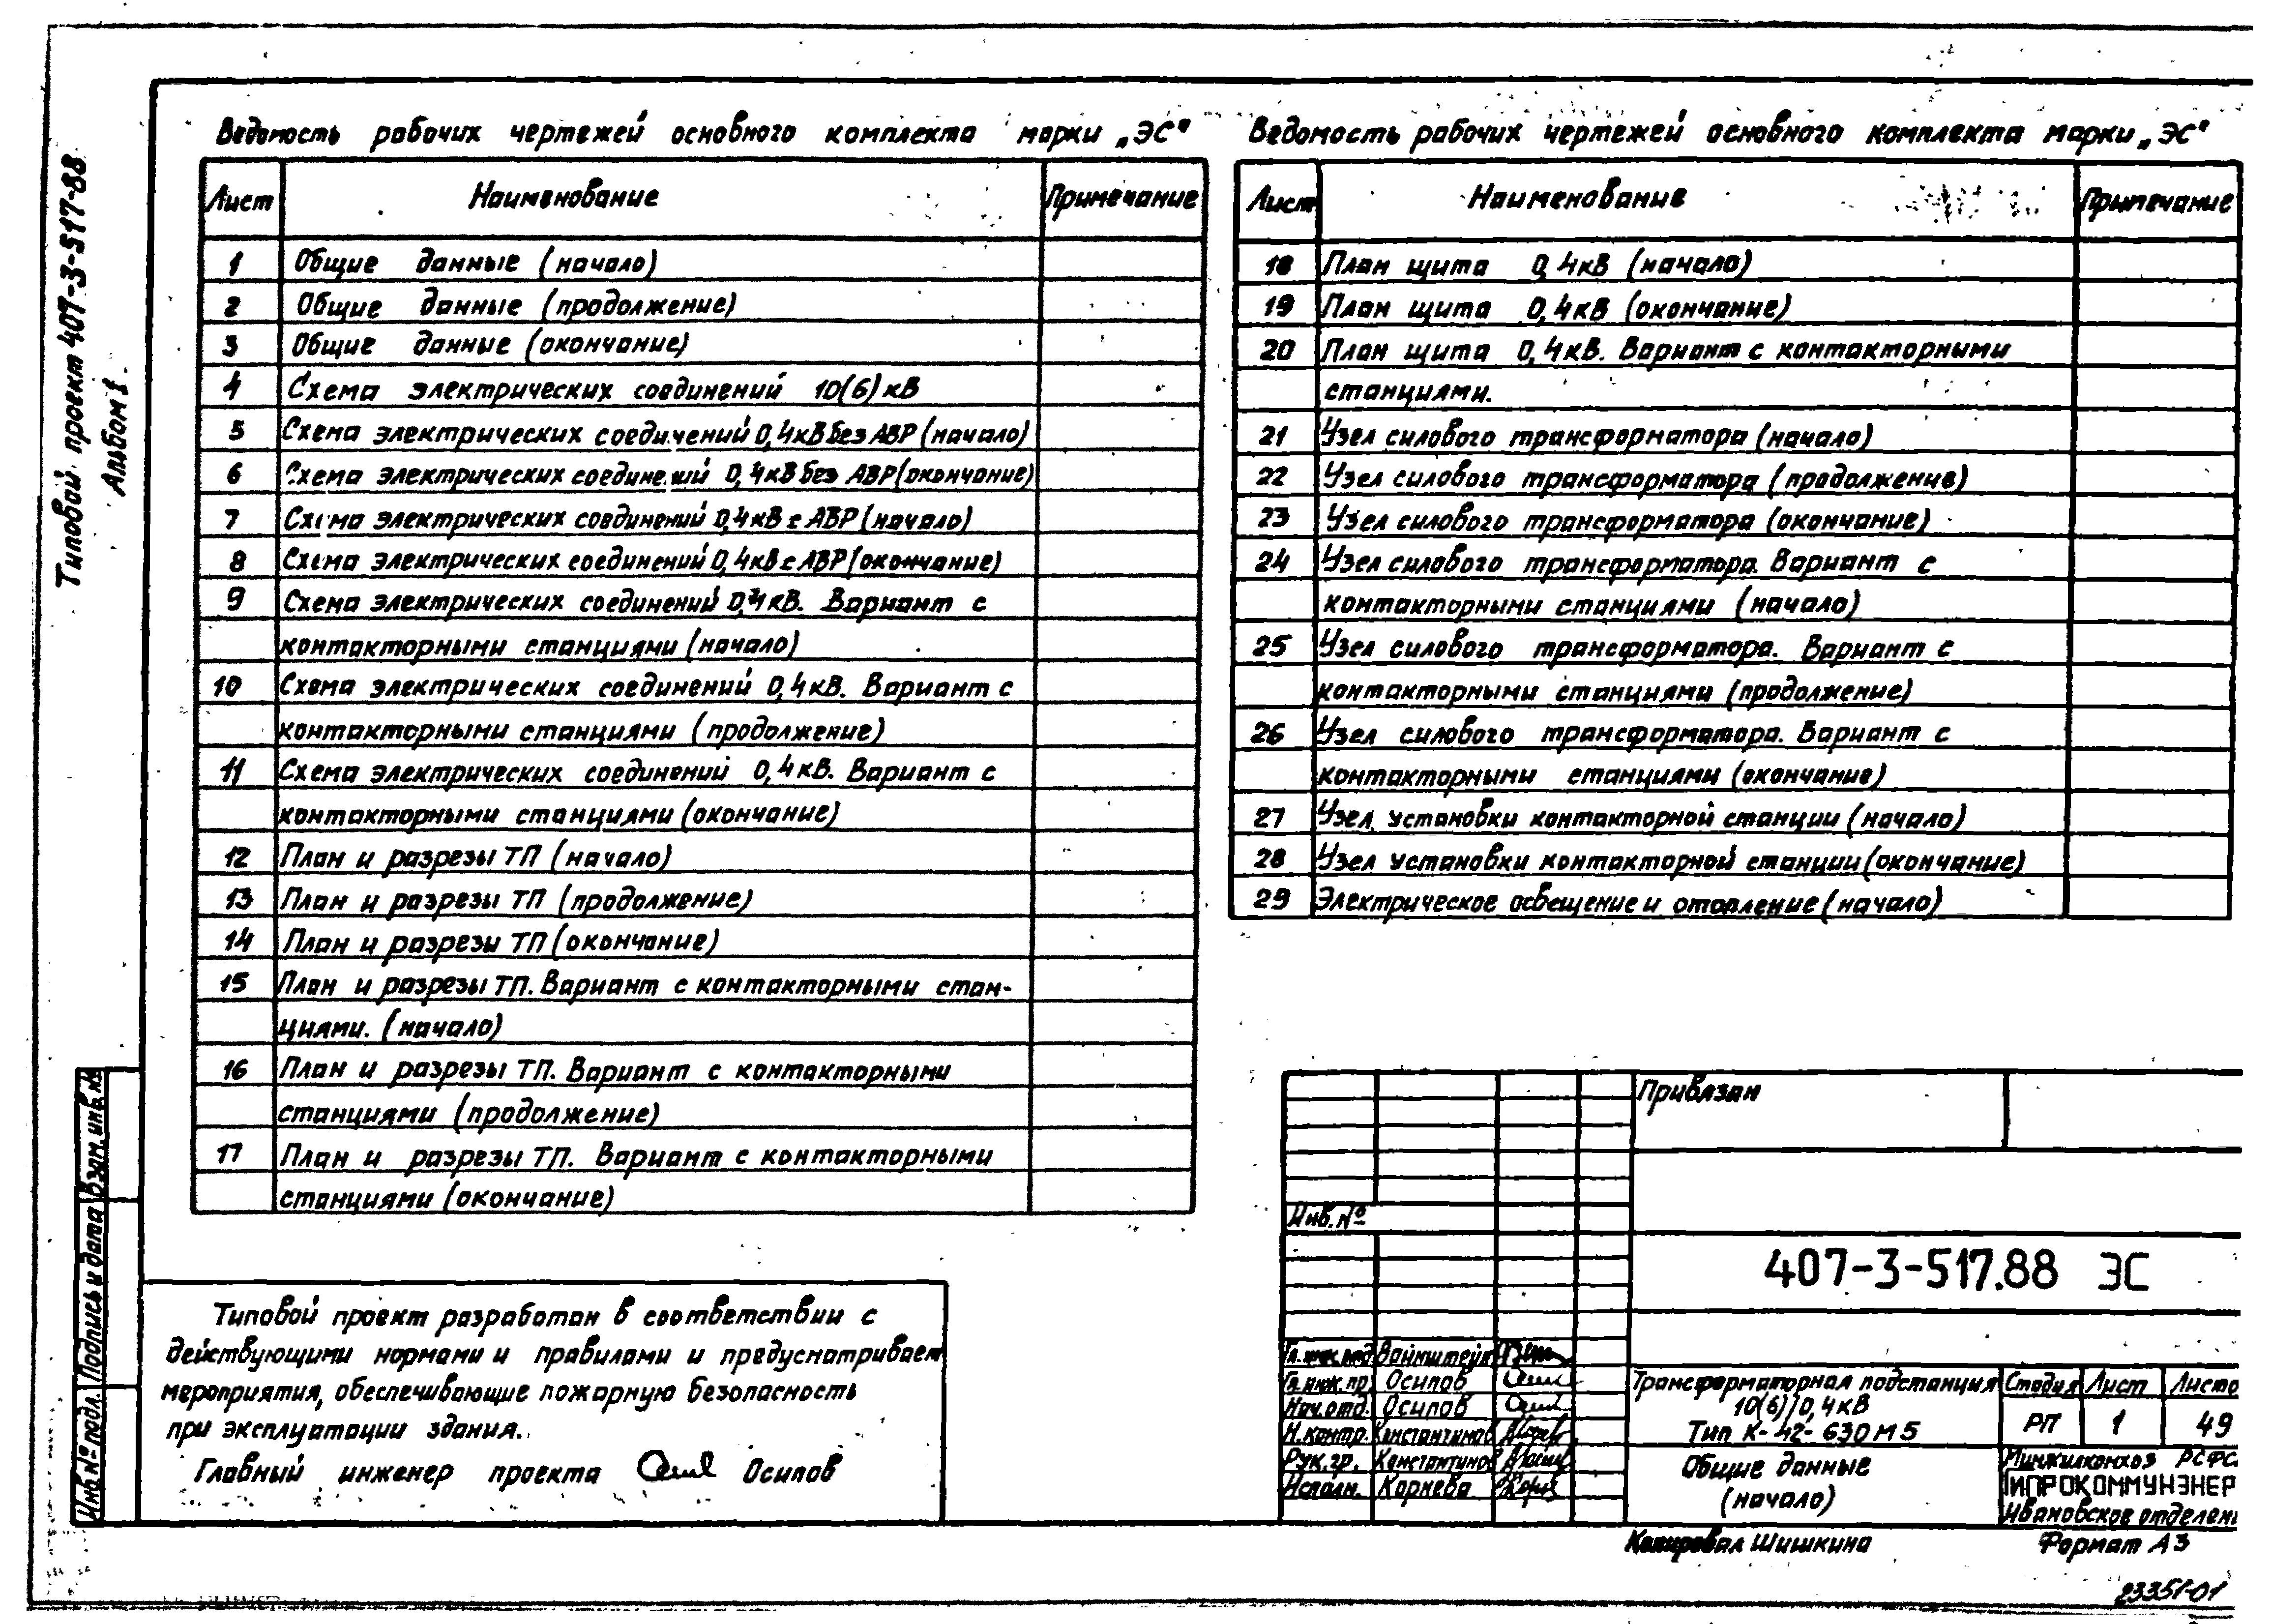 Типовой проект 407-3-517-88
Альбом 1.
Ведомость рабочих чертежей основного комплекта марки „ЭС"
Лист Наименование Примечание
1 Общие данные (начало)
2 Общие данные (продолжение)
3 Общие данные (окончание)
4 Схема электрических соединений 10(6)кВ
5 Схема электрических соединений 0,4кВ без АВР (начало)
6 Схема электрических соединений 0,4кВ без АВР (окончание)
7 Схема электрических соединений 0,4кВ с АВР (начало)
8 Схема электрических соединений 0,4кВ с АВР (окончание)
9 Схема электрических соединений 0,4кВ. Вариант с
контакторными станциями (начало)
10 Схема электрических соединений 0,4кВ. Вариант с
контакторными станциями (продолжение)
11 Схема электрических соединений 0,4кВ. Вариант с
контакторными станциями (окончание)
12 План и разрезы ТП (начало)
13 План и разрезы ТП (продолжение)
14 План и разрезы ТП (окончание)
15 План и разрезы ТП. Вариант с контакторными стан-
циями. (начало)
16 План и разрезы ТП. Вариант с контакторными
станциями (продолжение)
17 План и разрезы ТП. Вариант с контакторными
станциями (окончание)
Ведомость рабочих чертежей основного комплекта марки „ЭС"
Лист Наименование Примечание
18 План щита 0,4кВ (начало)
19 План щита 0,4кВ (окончание)
20 План щита 0,4кВ. Вариант с контакторными
станциями.
21 Узел силового трансформатора (начало)
22 Узел силового трансформатора (продолжение)
23 Узел силового трансформатора (окончание)
24 Узел силового трансформатора. Вариант с
контакторными станциями (начало)
25 Узел силового трансформатора. Вариант с
контакторными станциями (продолжение)
26 Узел силового трансформатора. Вариант с
контакторными станциями (окончание)
27 Узел установки контакторной станции (начало)
28 Узел установки контакторной станции (окончание)
29 Электрическое освещение и отопление (начало)
Типовой проект разработан в соответствии с
действующими нормами и правилами и предусматривает
мероприятия, обеспечивающие пожарную безопасность
при эксплуатации здания.
Главный инженер проекта Осипов
Взам. инв.№
Подпись и дата
Инв.№ подл.
Привязан
Инв.№
407-3-517.88 ЭС
Вайнштейн
Гл. инж. пр. Осипов
Нач. отд. Осипов
Н. контр. Константинов
Рук. гр. Константинов
Исполн. Корнева
Трансформаторная подстанция
10(6)/0,4кВ
Тип К-42-630 М5
Стадия Лист Листо
РП 1 49
Общие данные
(начало)
Минжилкомхоз РСФС
ГИПРОКОММУНЭНЕР
Ивановское отделен
Копировал Шишкина Формат А3
23351-01